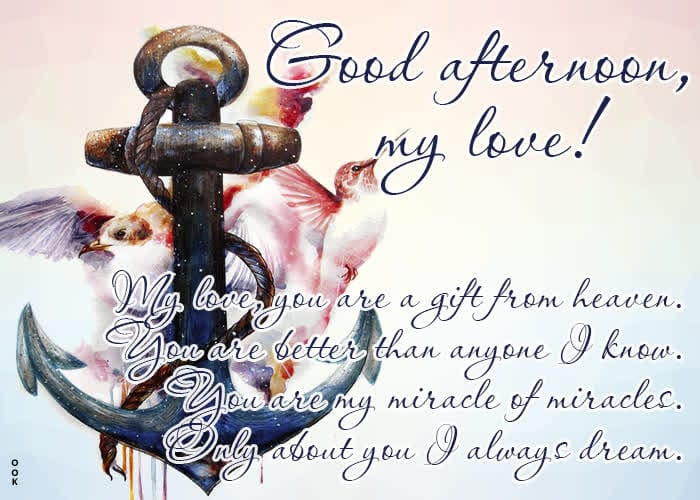 Good afternoon,
my love!
My love, you are a gift from heaven.
You are better than anyone I know.
You are my miracle of miracles.
Only about you I always dream.
OOK